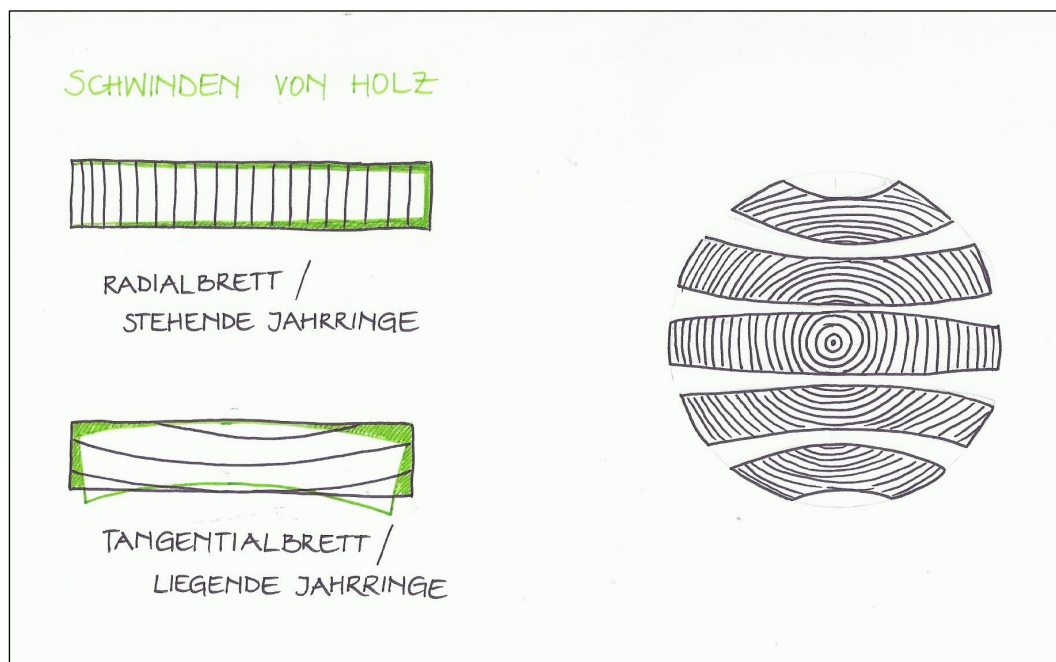 SCHWINDEN VON HOLZ
RADIALBRETT /
STEHENDE JAHRRINGE
TANGENTIALBRETT /
LIEGENDE JAHRRINGE